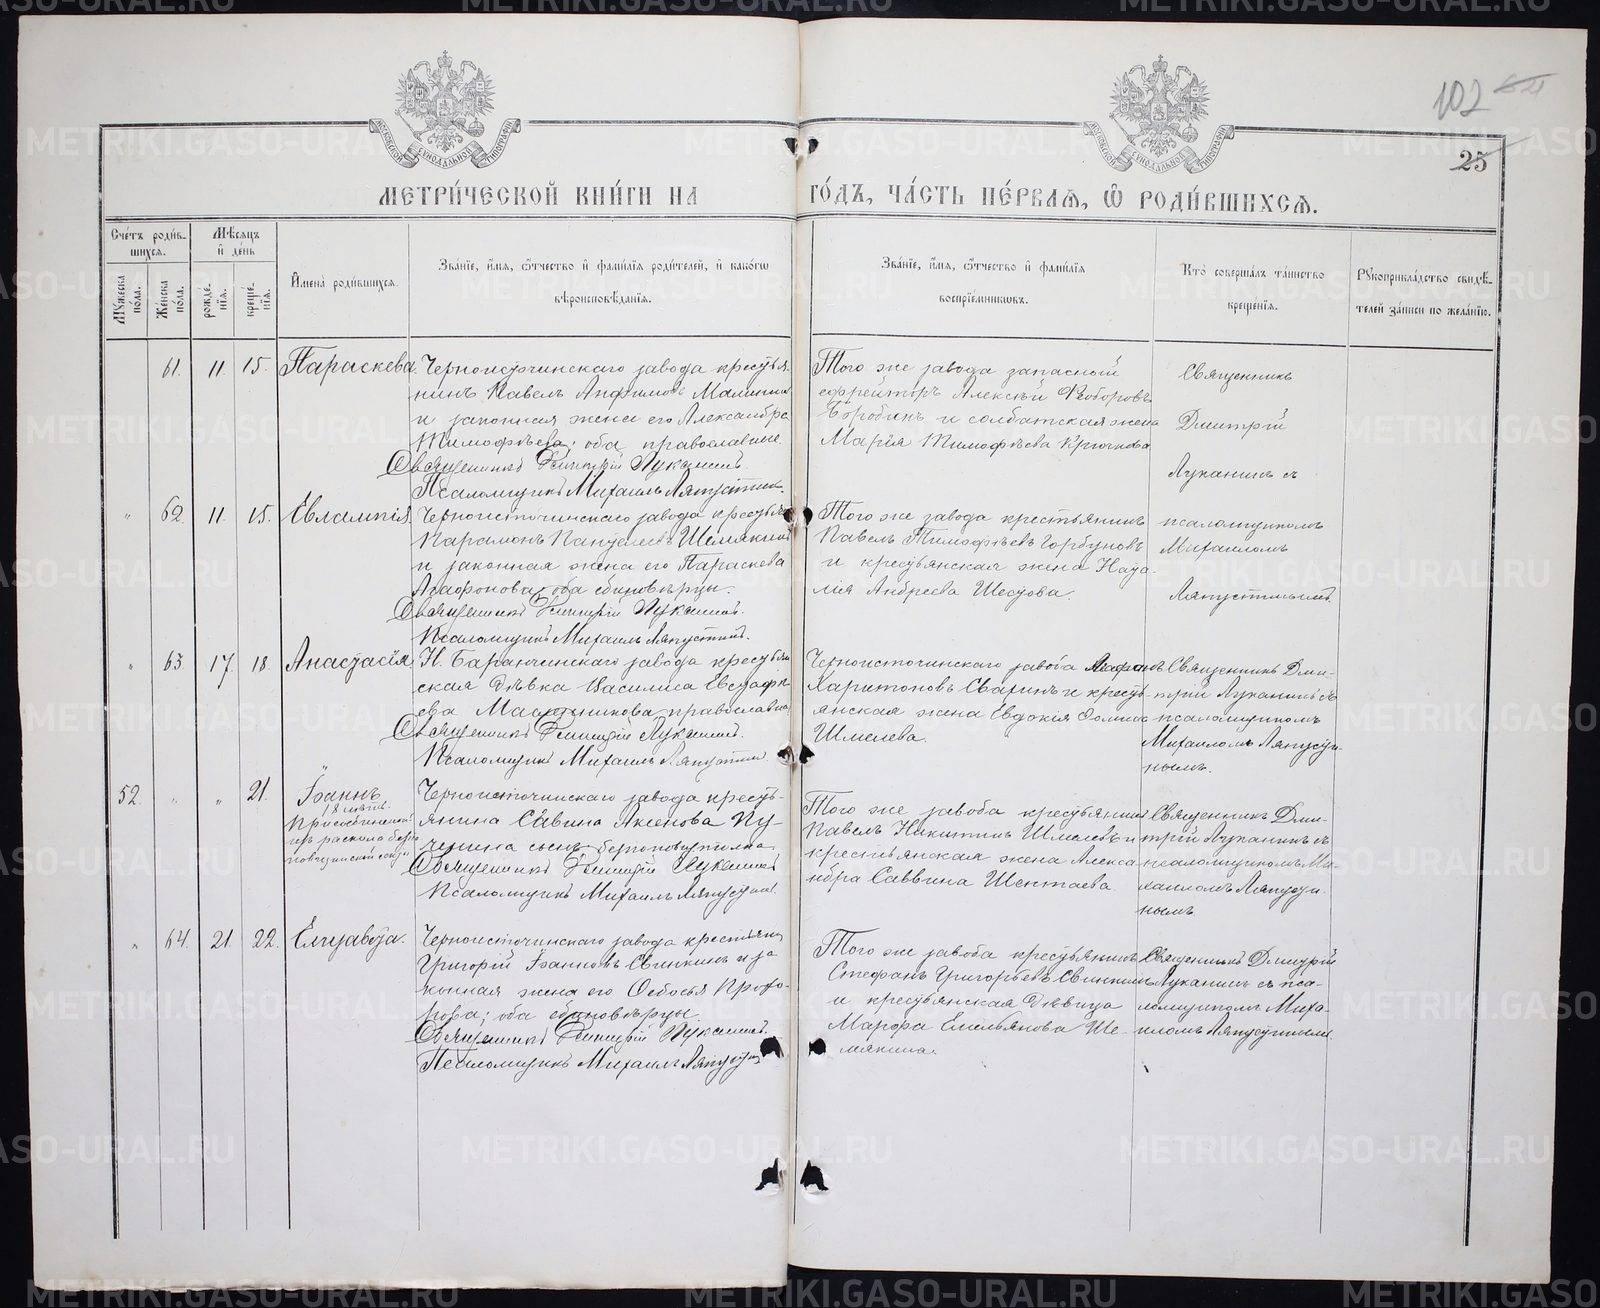 102
25
МЕТРИ́ЧЕСКОЙ КНИ́ГИ НА ГО́ДЪ, ЧА́СТЬ ПЕ́РВАѦ, Ѡ҆ РОДИ́ВШИХСѦ.
Сче́тъ роди́в-
шихсѧ.
Мѣ́сѧцъ
и҆ де́нь
Мꙋ́жеска
по́ла.
Же́нска
по́ла.
рожде́-
нїѧ.
креще́-
нїѧ.
И҆мена̀ роди́вшихсѧ.
Зва́нїе, и҆́мѧ, ѻ҆́тчество и҆ фами́лїѧ роди́телей, и҆ како́гѡ
вѣроисповѣ́данїѧ.
Зва́нїе, и҆́мѧ, ѻ҆́тчество и҆ фами́лїѧ
воспрїе́мникѡвъ.
Кто̀ соверша́лъ та́инство
креще́нїѧ.
Рꙋкоприкла́дство свидѣ́-
телей за́писи по жела́нїю.
61. 11. 15. Параскева.
Черноисточинскаго завода крестья-
нинъ Павелъ Анфимовъ
и законная жена его Александра
Тимофѣева; оба православные.
Священникъ Димитрій Луканинъ.
Псаломщикъ Михаилъ Ляпустинъ.
Того же завода запасный
ефрейторъ Алексѣй Ѳеодоровъ
и солдатская жена
Марія Тимофѣева Крючкова
Священникъ
Дмитрій
Луканинъ съ
псаломщикомъ
Михаиломъ
Ляпустинымъ
" 62. 11. 15. Евлампія.
Черноисточинскаго завода крестья
Парамонъ Пантелеевъ Шемякинъ
и законная жена его Параскева
Агафонова; оба единовѣрцы.
Священникъ Димитрій Луканинъ.
Псаломщикъ Михаилъ Ляпустинъ.
Того же завода крестьянинъ
Павелъ Тимофѣевъ Горбуновъ
и крестьянская жена Ната-
лія Андреева Шестова.
" 63. 17. 18. Анастасія
Н. Баранчинскаго завода крестьян
ская дѣвка Василиса Евстафі-
ева православная
Священникъ Димитрій Луканинъ.
Псаломщикъ Михаилъ Ляпустинъ
Черноисточинскаго завода
Харитоновъ Сваринъ и кресть-
янская жена Евдокія Ѳомина
Шмелева.
Священникъ Дми-
трій Луканинъ съ
псаломщикомъ
Михаиломъ Ляпусти-
нымъ.
52. " " 21. Іоаннъ
Присоединенный
изъ раскола
Черноисточинскаго завода кресть-
янина Саввина Аксенова Пу-
сынъ
Священникъ Димитрій Луканинъ
Псаломщикъ Михаилъ Ляпустинъ.
Того же завода крестьянинъ
Павелъ Никитинъ Шмелевъ и
крестьянская жена Алекса
ндра Саввина
Священникъ Дми-
трій Луканинъ съ
псаломщикомъ Ми-
хаиломъ Ляпусти-
нымъ
" 64. 21. 22. Елизавета.
Черноисточинскаго завода крестьянинъ
Григорій Іоанновъ Свинкинъ и за
конная жена его Ѳеодосья Прохо-
рова; оба единовѣрцы.
Священникъ Димитрій Луканинъ.
Псаломщикъ Михаилъ Ляпустин
Того же завода крестьянинъ
Стефанъ Григорьевъ Свинкинъ
и крестьянская дѣвица
Марфа Емельянова Ше-
мякина.
Священникъ Дмитрій
Луканинъ съ пса-
ломщикомъ Миха-
иломъ Ляпустинымъ.